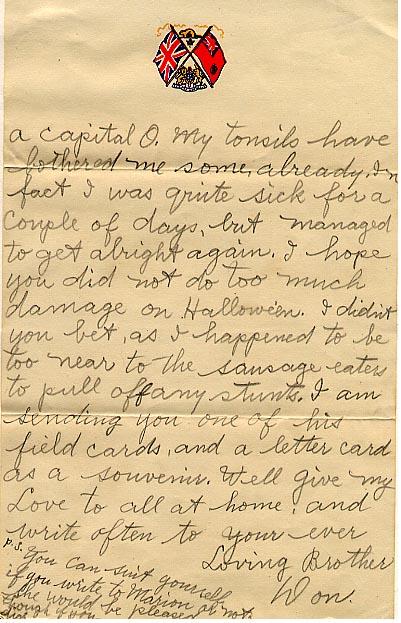 a capital O. My tonsils have
bothered me some, already. In
fact I was quite sick for a
couple of days, but managed
to get alright again. I hope
you did not do too much
damage on Hallowe'en. I didn't
you bet, as I happened to be
too near to the sausage eaters
to pull off any stunts. I am
sending you one of his
field cards, and a letter card
as a souvenir. Well give my
Love to all at home, and
write often to your ever
Loving Brother
Don.
P.S. You can suit yourself
if you write to Marion or not
she would be pleased
though if you